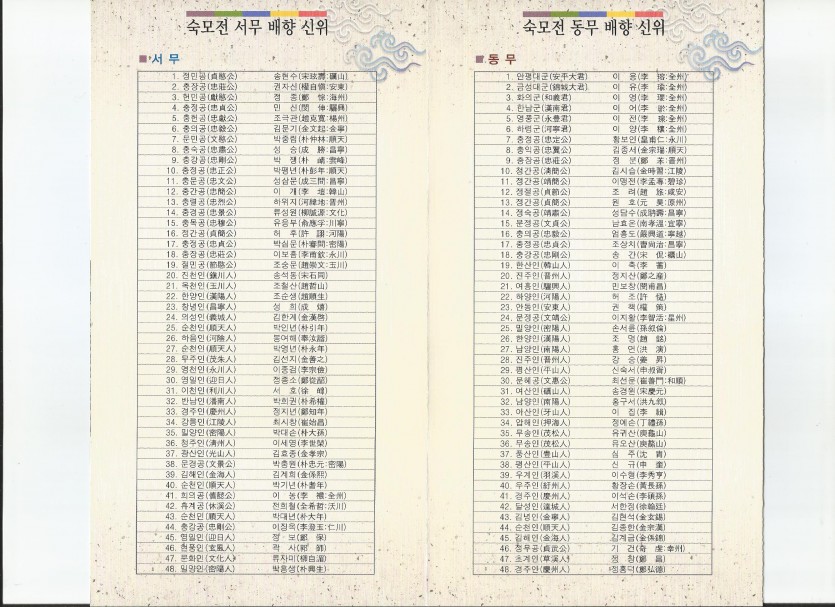 숙모전 서무 배향 신위
서 무
1. 정민공(貞愍公) 송현수(宋玹壽:礪山)
2. 충장공(忠莊公) 권자신(權自愼:安東)
3. 헌민공(獻愍公) 정 종(鄭 悰:海州)
4. 충정공(忠貞公) 민 신(閔 伸:驪興)
5. 충헌공(忠獻公) 조극관(趙克寬:楊州)
6. 충의공(忠毅公) 김문기(金文起:金寧)
7. 문민공(文愍公) 박중림(朴仲林:順天)
8. 충숙공(忠肅公) 성 승(成 勝:昌寧)
9. 충강공(忠剛公) 박 쟁(朴 崝:雲峰)
10. 충정공(忠正公) 박팽년(朴彭年:順天)
11. 충문공(忠文公) 성삼문(成三問:昌寧)
12. 충간공(忠簡公) 이 개(李 塏:韓山)
13. 충렬공(忠烈公) 하위지(河緯地:晋州)
14. 충경공(忠景公) 류성원(柳誠源:文化)
15. 충목공(忠穆公) 유응부(兪應孚:川寧)
16. 정간공(貞簡公) 허 후(許 詡:河陽)
17. 충정공(忠貞公) 박심문(朴審問:密陽)
18. 충장공(忠莊公) 이보흠(李甫欽:永川)
19. 절민공(節愍公) 조숭문(趙崇文:玉川)
20. 진천인(鎭川人) 송석동(宋石同)
21. 옥천인(玉川人) 조철산(趙哲山)
22. 한양인(漢陽人) 조순생(趙順生)
23. 창녕인(昌寧人) 성 희(成 熺)
24. 의성인(義城人) 김한계(金漢啓)
25. 순천인(順天人) 박인년(朴引年)
26. 하음인(河陰人) 봉여해(奉汝諧)
27. 순천인(順天人) 박영년(朴永年)
28. 무주인(茂朱人) 김선지(金善之)
29. 영천인(永川人) 이종검(李宗儉)
30. 영일인(迎日人) 정종소(鄭從韶)
31. 이천인(利川人) 서 호(徐 )
32. 반남인(潘南人) 박희권(朴希權)
33. 경주인(慶州人) 정지년(鄭知年)
34. 강릉인(江陵人) 최시창(崔始昌)
35. 밀양인(密陽人) 박대손(朴大孫)
36. 청주인(淸州人) 이세영(李世榮)
37. 광산인(光山人) 김효종(金孝宗)
38. 문경공(文景公) 박충원(朴忠元:密陽)
39. 김해인(金海人) 김계희(金係熙)
40. 순천인(順天人) 박기년(朴耆年)
41. 희의공(僖懿公) 이 농(李 :全州)
42. 휴계공(休溪公) 전희철(全希哲:沃川)
43. 순천인(順天人) 박대년(朴大年)
44. 충강공(忠剛公) 이징옥(李澄玉:仁川)
45. 영일인(迎日人) 정 보(鄭 保)
46. 현풍인(玄風人) 곽 사(郭 師)
47. 문화인(文化人) 류자미(柳自湄)
48. 밀양인(密陽人) 박흥생(朴興生)
숙모전 동무 배향 신위
동 무
1. 안평대군(安平大君) 이 용(李 瑢:全州)
2. 금성대군(錦城大君) 이 유(李 瑜:全州)
3. 화의군(和義君) 이 영(李 瓔:全州)
4. 한남군(漢南君) 이 어(李 :全州)
5. 영풍군(永豊君) 이 전(李 瑔:全州)
6. 하령군(河寧君) 이 양(李 穰:全州)
7. 충정공(忠定公) 황보인(皇甫仁:永川)
8. 충익공(忠翼公) 김종서(金宗瑞:順天)
9. 충장공(忠莊公) 정 분(鄭 苯:晋州)
10. 청간공(淸簡公) 김시습(金時習:江陵)
11. 정간공(靖簡公) 이맹전(李孟專:碧珍)
12. 정절공(貞節公) 조 려(趙 旅:咸安)
13. 정간공(貞簡公) 원 호(元 昊:原州)
14. 정숙공(靖肅公) 성담수(成聃壽:昌寧)
15. 문정공(文貞公) 남효온(南孝溫:宜寧)
16. 충의공(忠毅公) 엄흥도(嚴興道:寧越)
17. 충정공(忠貞公) 조상치(曺尙治:昌寧)
18. 충강공(忠剛公) 송 간(宋 侃:礪山)
19. 한산인(韓山人) 이 축(李 蓄)
20. 진주인(晋州人) 정지산(鄭之産)
21. 여흥인(驪興人) 민보창(閔甫昌)
22. 하양인(河陽人) 허 조(許 慥)
23. 안동인(安東人) 권 책(權 策)
24. 문정공(文靖公) 이지활(李智活:星州)
25. 밀양인(密陽人) 손서륜(孫叙倫)
26. 한양인(漢陽人) 조 명(趙 銘)
27. 남양인(南陽人) 홍 연(洪 演)
28. 진주인(晋州人) 강 승(姜 昇)
29. 평산인(平山人) 신숙서(申叔胥)
30. 문혜공(文惠公) 최선문(崔善門:和順)
31. 여산인(礪山人) 송경원(宋慶元)
32. 남양인(南陽人) 홍구서(洪九叙)
33. 아산인(牙山人) 이 집(李 )
34. 압해인(押海人) 정예손(丁禮孫)
35. 무송인(茂松人) 유귀산(庾龜山)
36. 무송인(茂松人) 유오산(庾鰲山)
37. 풍산인(豊山人) 심 주(沈 )
38. 평산인(平山人) 신 규(申 奎)
39. 우계인(羽溪人) 이수형(李秀亨)
40. 우주인(紆州人) 황장손(黃長孫)
41. 경주인(慶州人) 이석손(李碩孫)
42. 달성인(達城人) 서한정(徐翰廷)
43. 김녕인(金寧人) 김현석(金玄錫)
44. 순천인(順天人) 김종한(金宗漢)
45. 김해인(金海人) 김계금(金係錦)
46. 정무공(貞武公) 기 건(奇 虔:幸州)
47. 초계인(草溪人) 정 창(鄭 昌)
48. 경주인(慶州人) 정홍덕(鄭弘德)